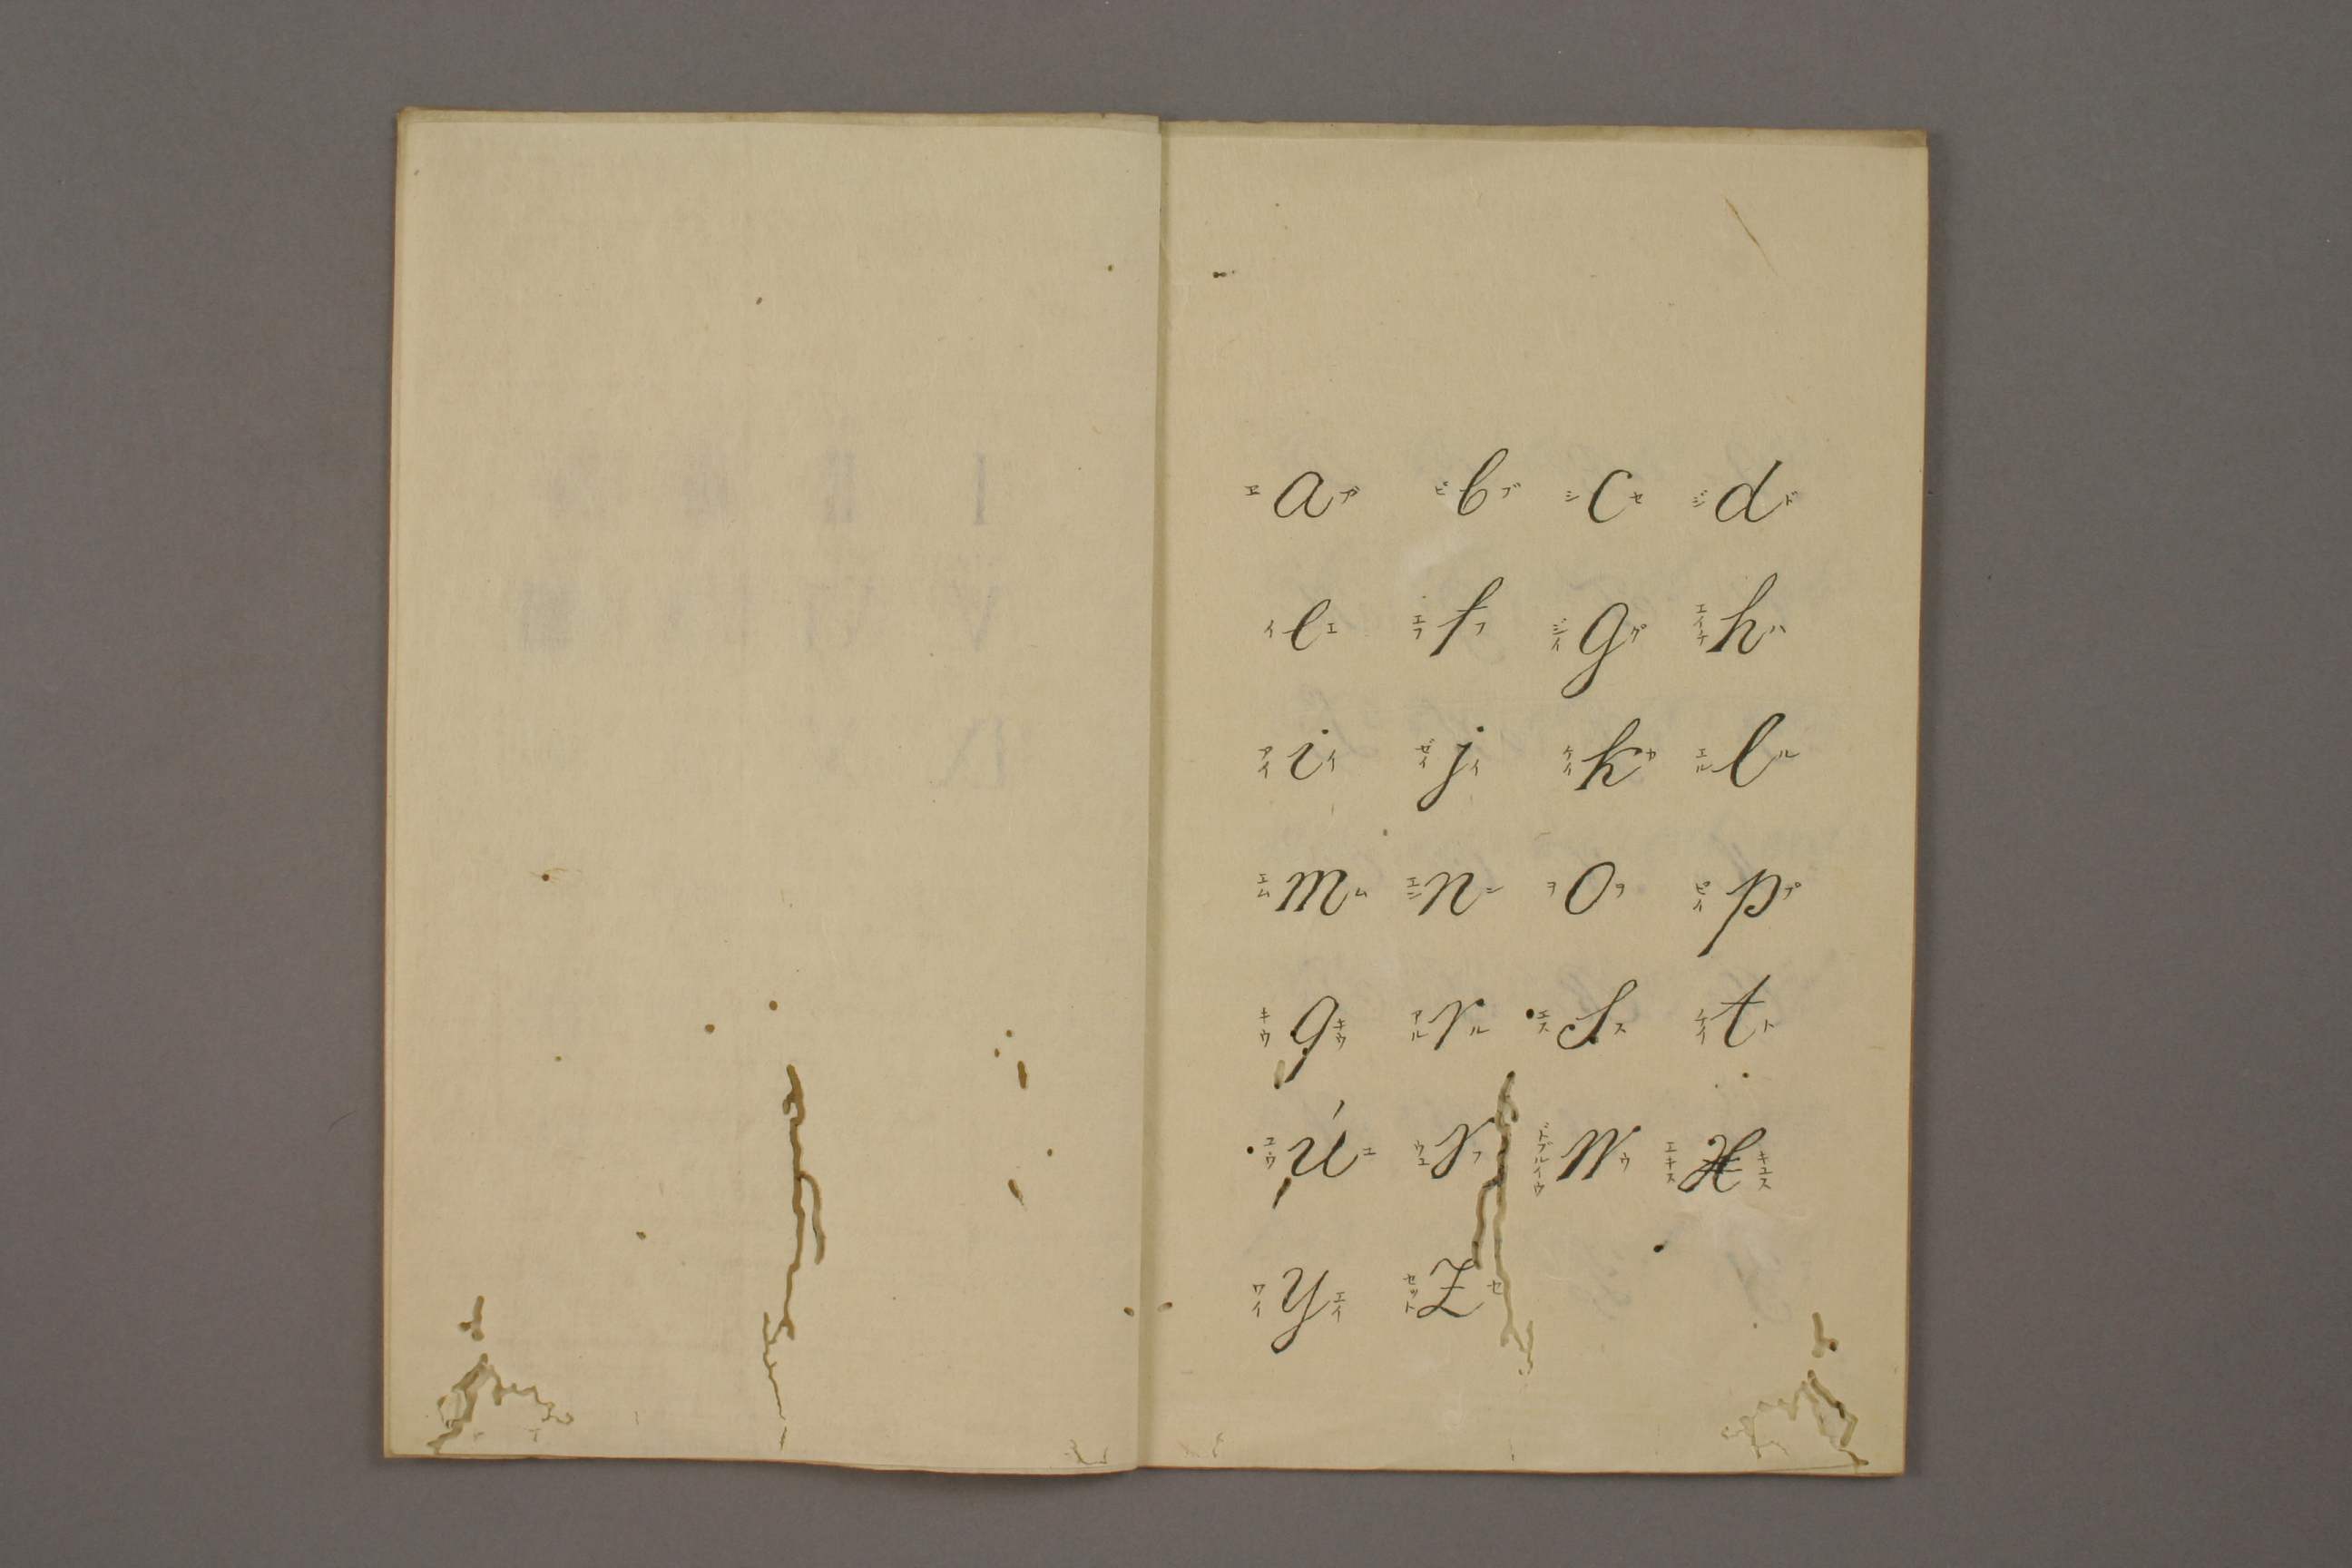 ヱ a ア ビ b ブ シ c セ ジ d ド
イ e エ エフ f フ ジイ g グ エイチ h ハ
アイ i イ ゼイ j イ ケイ k カ エル l ル
エム m ム エン n ン ヲ o ヲ ピイ p プ
キウ q キウ アル r ル エス s ス テイ t ト
ユウ u ユ ウユ v フ ドブルイウ w ウ エキス x キユス
ワイ y エイ セット z セ